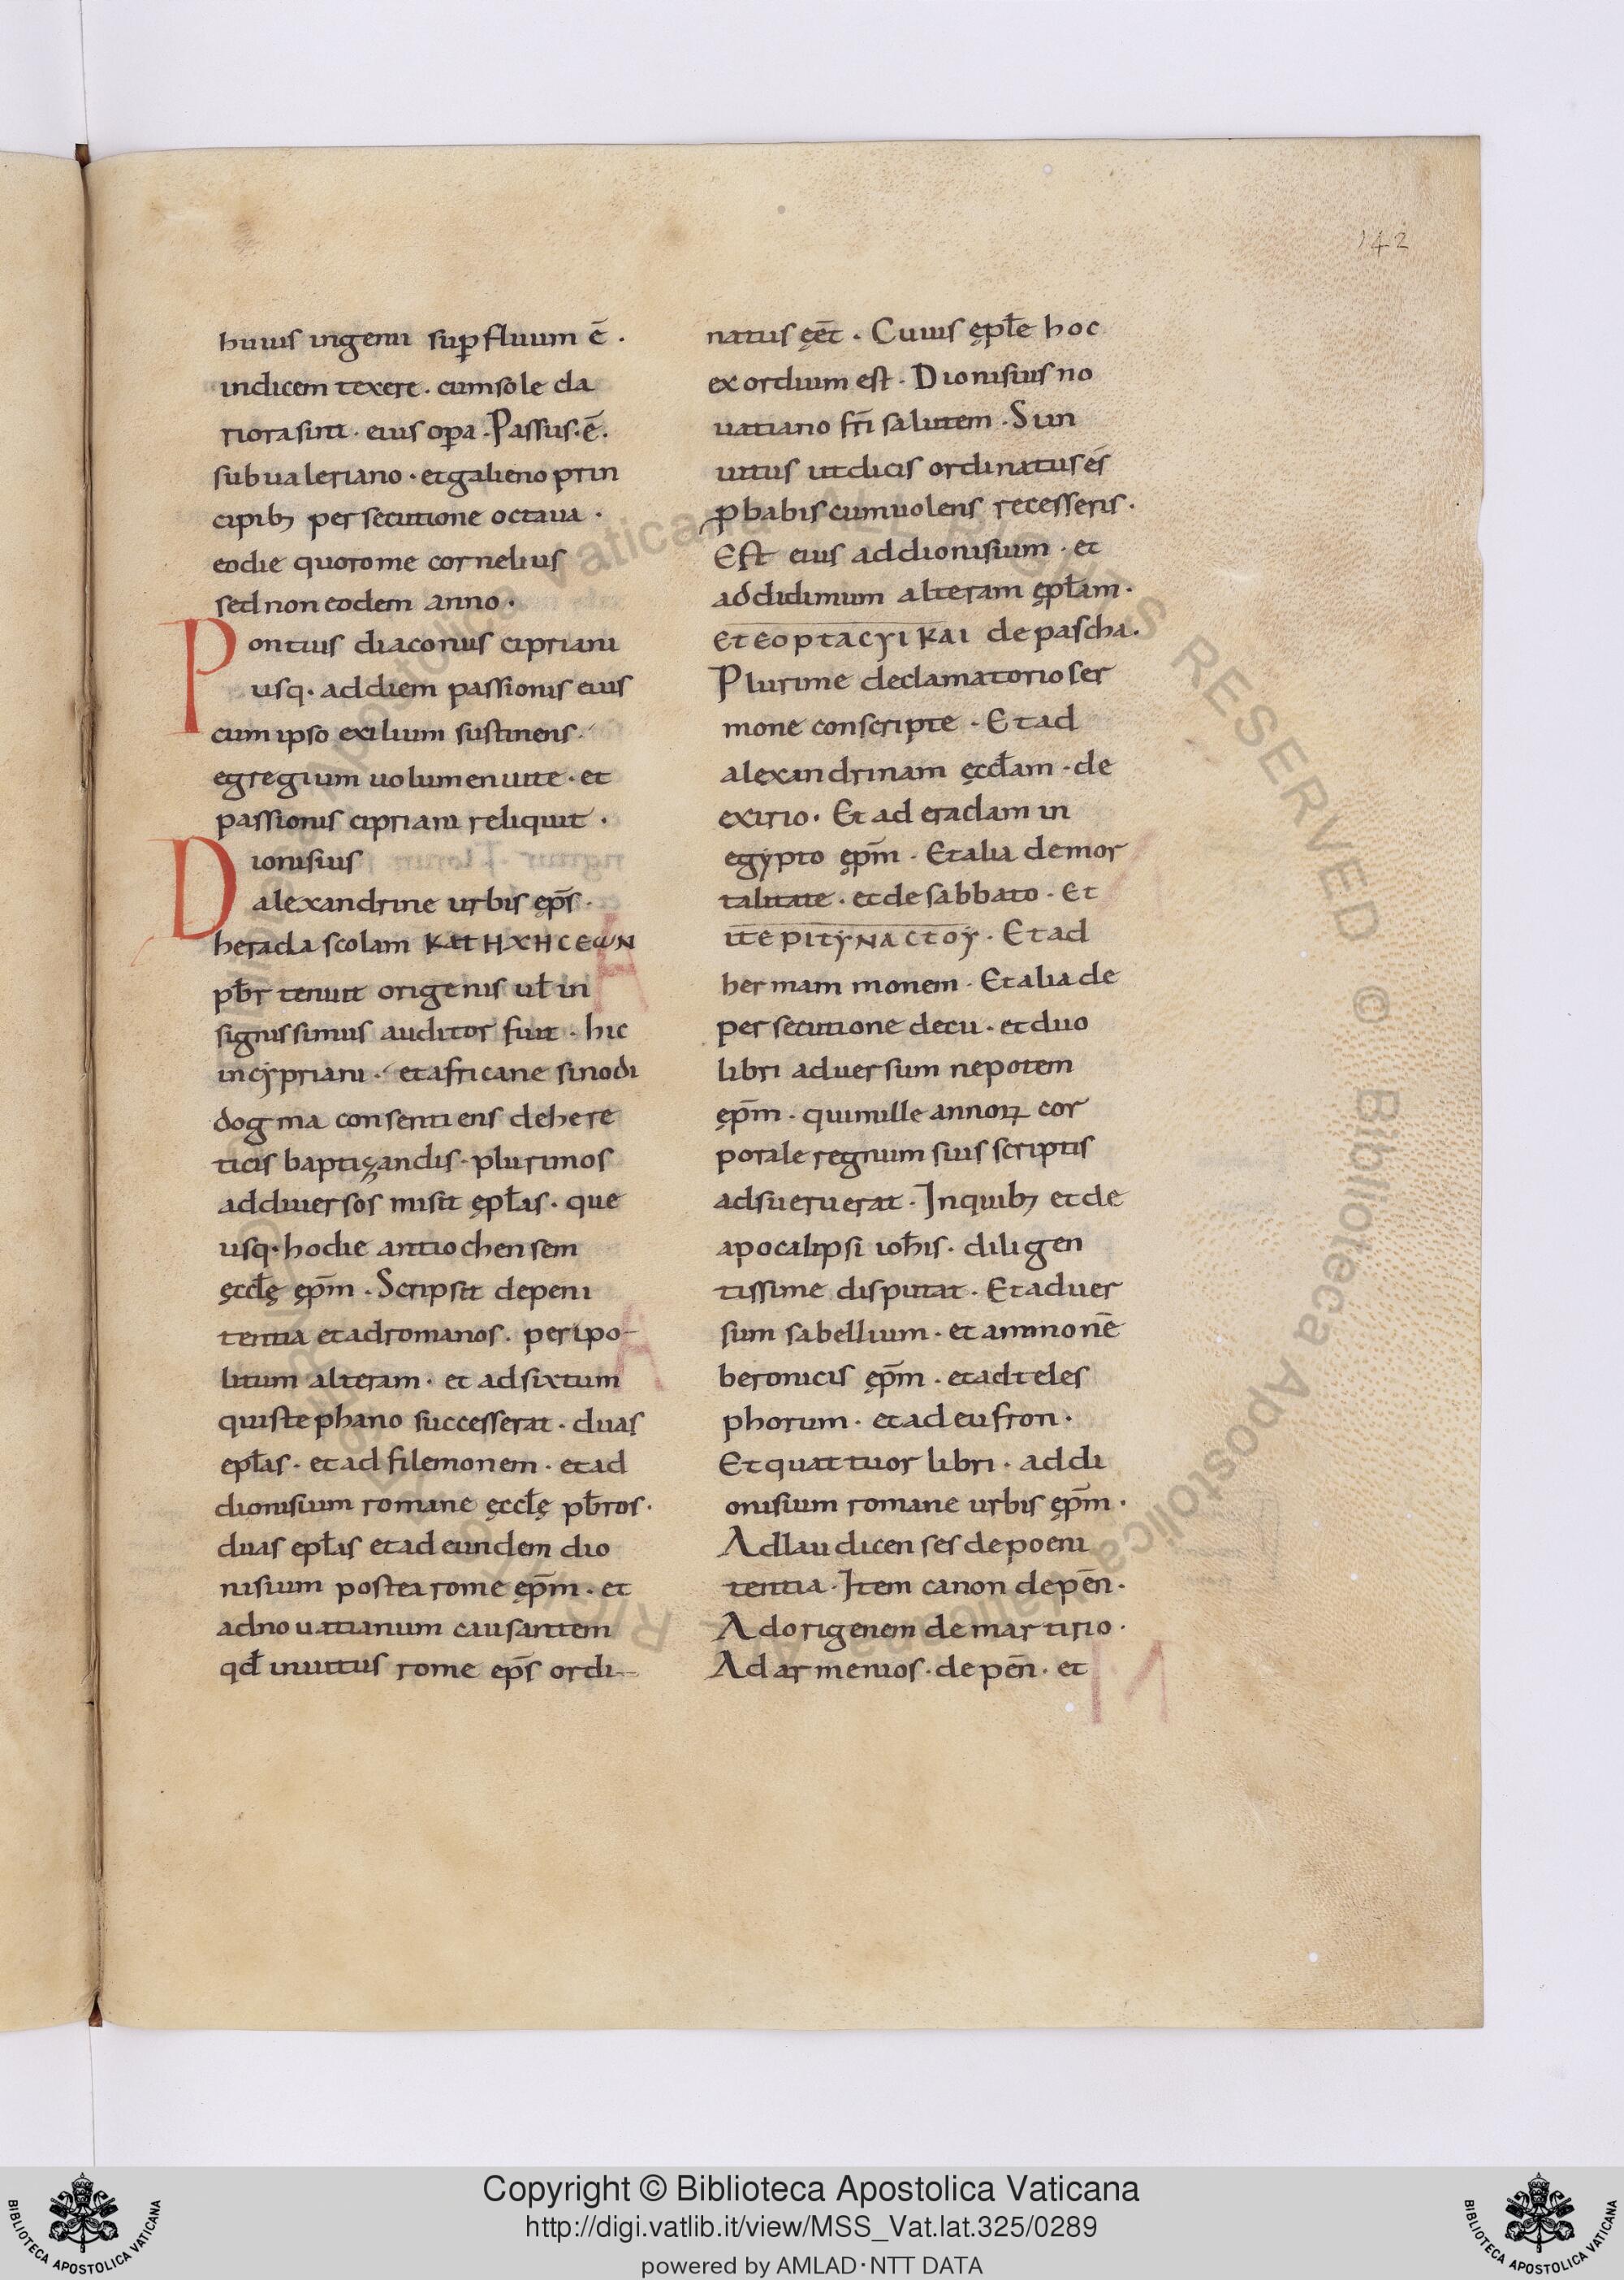 142
huius ingenii suꝑfluum ē .
indicem texere . cum sole cla
riora sint · eius oꝑa . Passus · ē .
sub ualeriano · et galieno prin
cipibꝫ persecutione octaua ·
eo die quo rome cornelius
sed non eodem anno ·
Pontius diaconus cipriani
usq · ad diem passionis eius
cum ipso exilium sustinens ·
egregium uolumen uite · et
passionis cipriani reliquit ·
Dionisius
alexandrine urbis ęp̄s ·
heracla scolam ΚΑΤΗΧΗCΕωΝ
pb̄r tenuit origenis ul̄ in
signissimus auditor fuit · hic
in cẏpriani · et africane sinodi
dogma consentiens de here
ticis baptiꝫandis · plurimos
ad diuersos misit ępl̄as · que
usq · hodie antiochensem
ęccl̄ę ęp̄m · Scripsit de peni
tentia et ad romanos . per ipo-
litum alteram · et ad sixtum
qui stephano successerat · duas
epl̄as · et ad filemonem · et ad
dionisium romane ęccl̄ę pb̄ros ·
duas epl̄as et ad eundem dio
nisium postea rome ęp̄m · et
ad nouatianum causantem
qd̄ inuitus rome ep̄s ordi-
natus ęēt · Cuius ępl̄e hoc
exordium est · Dionisius no
uatiano fr̄i salutem · Si in
uitus ut dicis ordinatus es
ꝓbabis cum uolens recesseris ·
Est eius ad dionisium · et
ad didimum alteram ępl̄am ·
et eoptacyi kai de pascha .
Plurime declamatorio ser
mone conscripte · Et ad
alexandrinam ęccl̄am · de
exirio · Et ad eraclam in
egẏpto ęp̄m · Et alia de mor
talitate · et de sabbato · Et
ite pitynactoy · Et ad
hermammonem · Et alia de
persecutione decii · et duo
libri aduersum nepotem
ęp̄m · qui mille annoꝝ cor
porale regnum suis scriptis
adsueruerat · In quibꝫ et de
apocalipsi ioh̄is · diligen
tissime disputat · Et aduer
sum sabellium · et ammonē
beronicis ęp̄m · et ad teles
phorum · et ad eufron ·
Et quattuor libri · ad di
onisium romane urbis ęp̄m ·
Ad laudicenses de poeni
tentia · Item canon de pen̄ ·
Ad origenem de martirio ·
Ad armenios · de pen̄ · et
Copyright © Biblioteca Apostolica Vaticana
http://digi.vatlib.it/view/MSS_Vat.lat.325/0289
powered by AMLAD·NTT DATA
BIBLIOTECA APOSTOLICA VATICANA
BIBLIOTECA APOSTOLICA VATICANA